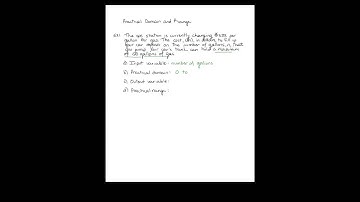 Practical Domain and Range
Ex1 The gas station is currently charging
gallon for gas. The cost, in dollars, to fill up
your car depends on the number of gallons, n, that
you pump. Your car's tank can hold a maximum
of 20 gallons of gas.
a) Input variable: number of gallons
b) Practical domain: 0 to
c) Output variable:
d) Practical range: